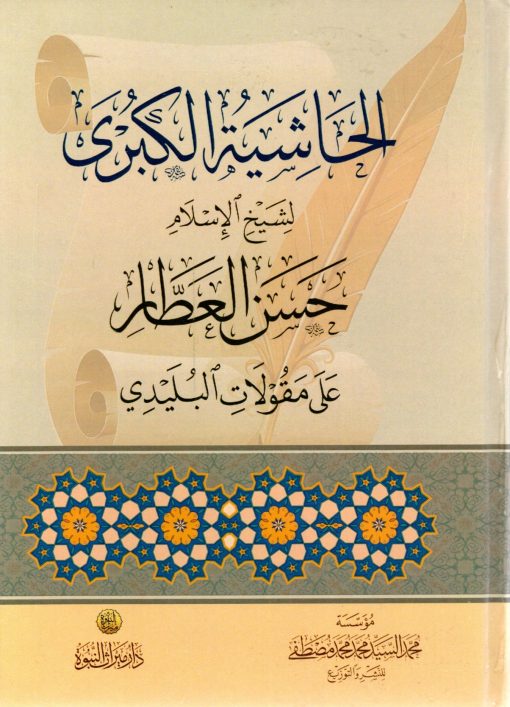 الحَاشِيَةُ الكُبْرَى
لِشَيْخِ الإِسْلَامِ
حَسَن العَطَّار
عَلَى مَقُولَاتِ البُلَيْدِي
مُؤَسَّسَة
محمد السيد محمد محمد مصطفى
للنشر والتوزيع
دار ميراث النبوة